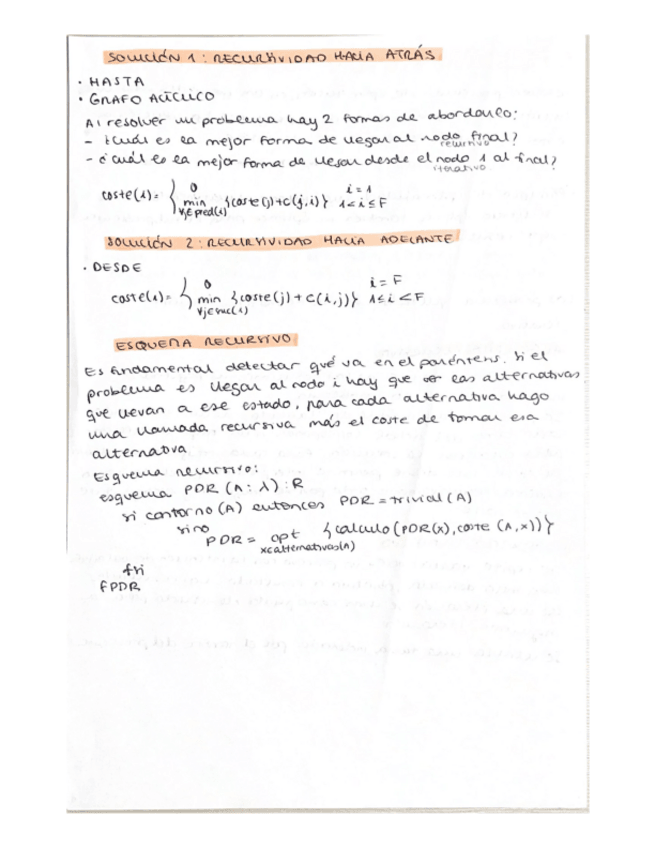 SOLUCIÓN 1: RECURSIVIDAD HACIA ATRÁS
· HASTA
· GRAFO ACÍCLICO
Al resolver un problema hay 2 formas de abordarlo:
- ¿Cuál es la mejor forma de llegar al nodo final?
recursivo
- ¿Cuál es la mejor forma de llegar desde el nodo 1 al final?
iterativo
coste(i) = { 0 i = 1
min {coste(j)+C(j,i)} 1<i≤F
∀j∈pred(i)
SOLUCIÓN 2: RECURSIVIDAD HACIA ADELANTE
· DESDE
coste(i) = { 0 i = F
min {coste(j) + C(i,j)} 1≤i<F
∀j∈suc(i)
ESQUEMA RECURSIVO
Es fundamental detectar qué va en el paréntesis. Si el
problema es llegar al nodo i hay que ver las alternativas
que llevan a ese estado, para cada alternativa hago
una llamada recursiva más el coste de tomar esa
alternativa
Esquema recursivo:
esquema PDR (A: λ): R
si contorno (A) entonces PDR = trivial (A)
sino
PDR = opt {calculo (PDR(x), coste (A,x))}
x∈alternativas(A)
fsi
fPDR